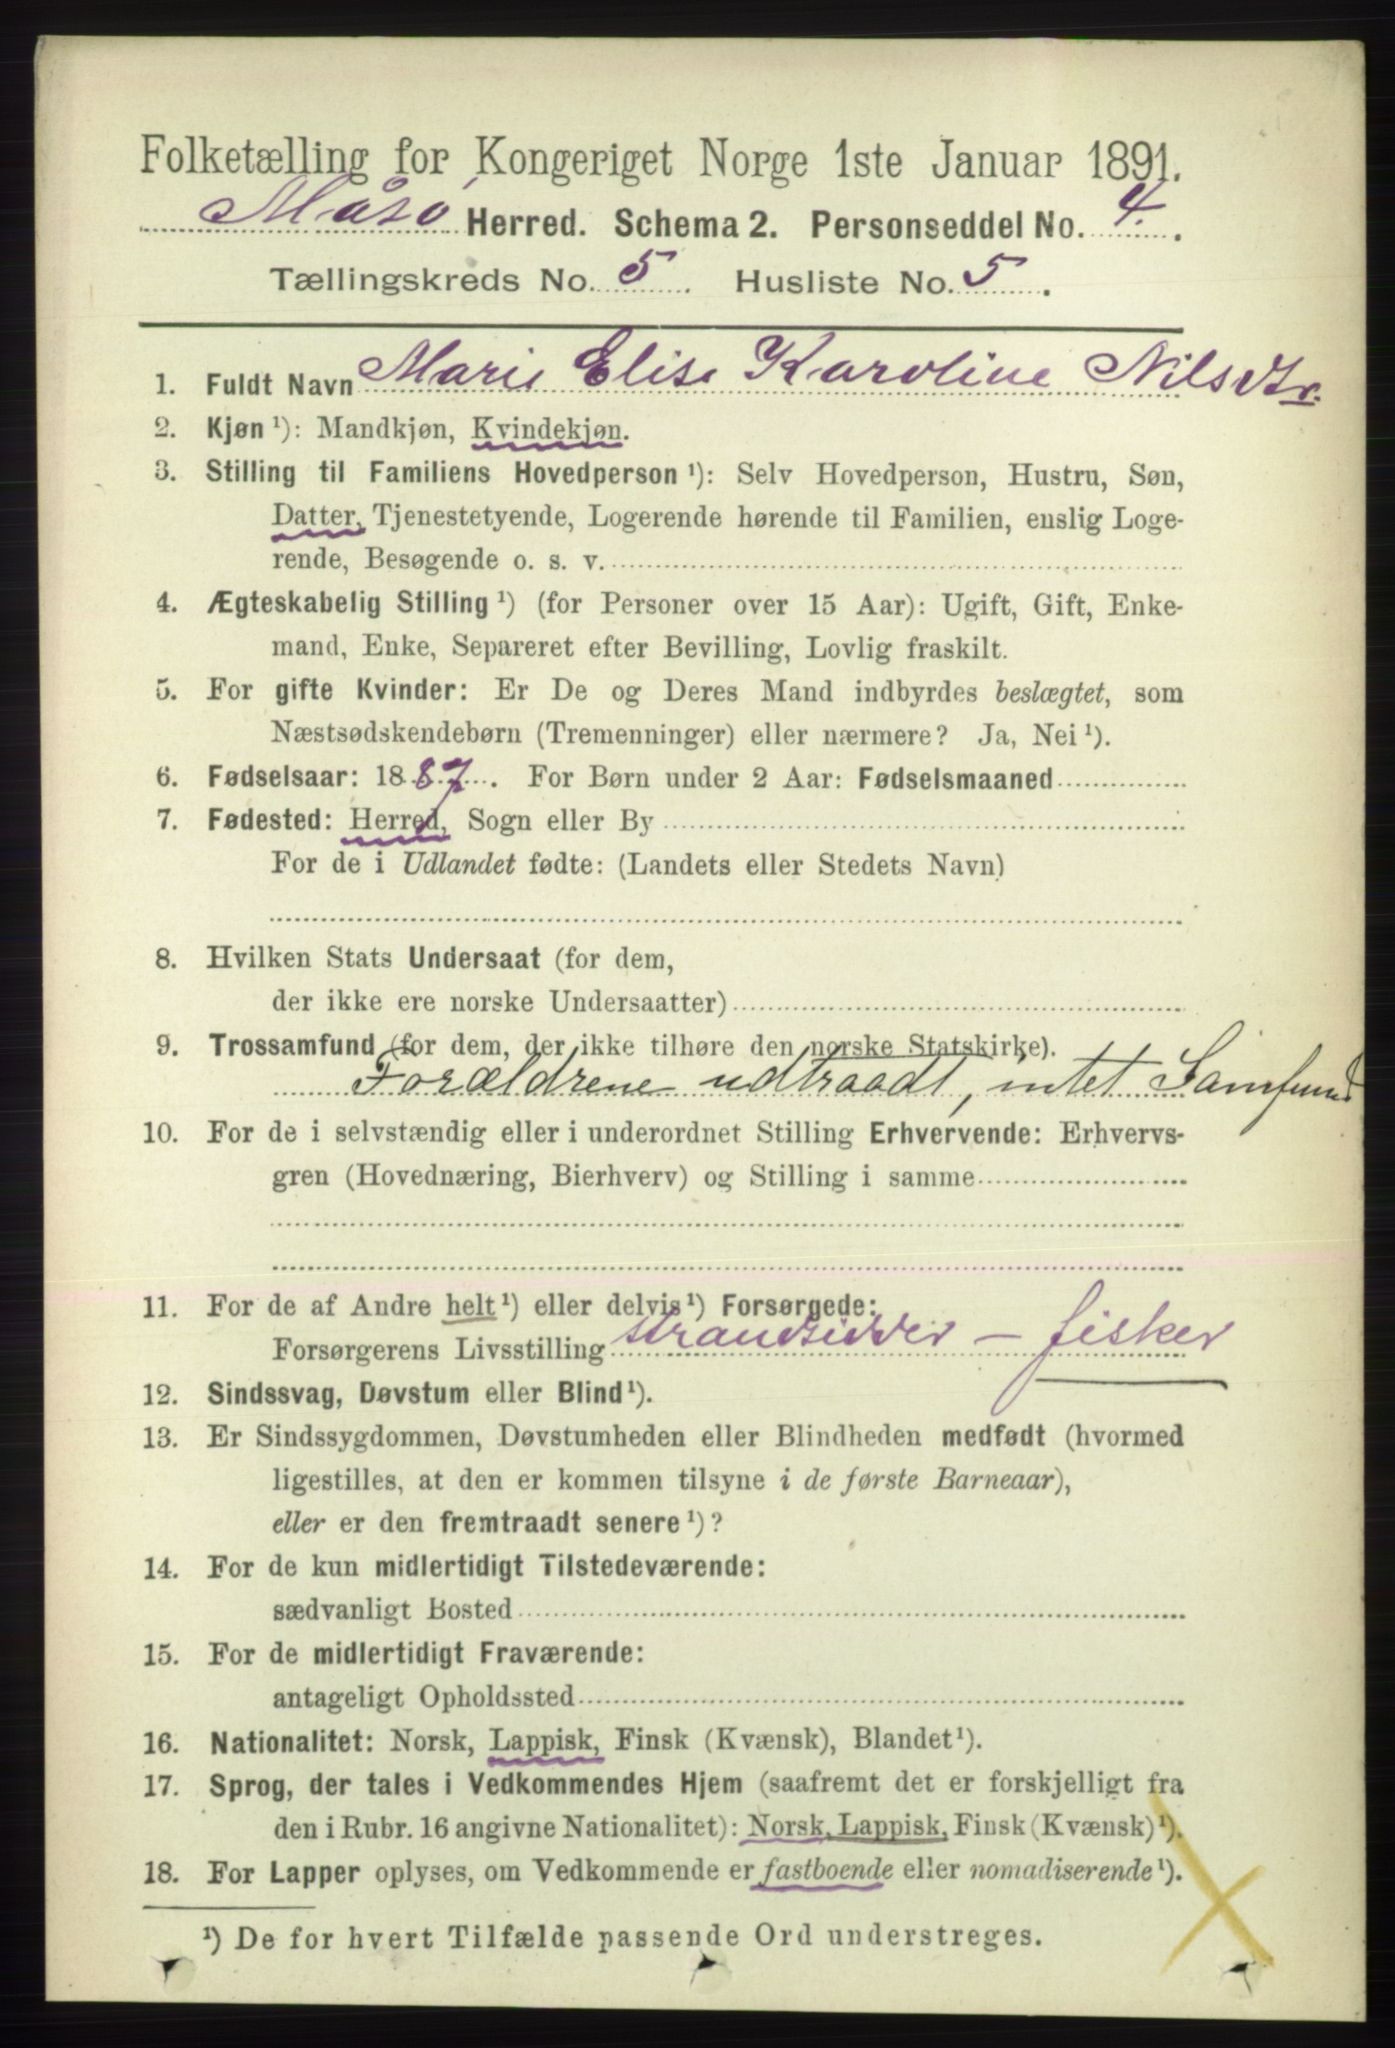 Folketælling for Kongeriget Norge 1ste Januar 1891.
Måsø Herred. Schema 2. Personseddel No. 4.
Tællingskreds No. 5. Husliste No. 5.
1. Fuldt Navn Marie Elise Karoline Nilsdtr.
2. Kjøn ¹): Mandkjøn, Kvindekjøn.
3. Stilling til Familiens Hovedperson ¹): Selv Hovedperson, Hustru, Søn,
Datter, Tjenestetyende, Logerende hørende til Familien, enslig Loge-
rende, Besøgende o. s. v.
4. Ægteskabelig Stilling ¹) (for Personer over 15 Aar): Ugift, Gift, Enke-
mand, Enke, Separeret efter Bevilling, Lovlig fraskilt.
5. For gifte Kvinder: Er De og Deres Mand indbyrdes beslægtet, som
Næstsødskendebørn (Tremenninger) eller nærmere? Ja, Nei ¹).
6. Fødselsaar: 1887. For Børn under 2 Aar: Fødselsmaaned
7. Fødested: Herred, Sogn eller By
For de i Udlandet fødte: (Landets eller Stedets Navn)
8. Hvilken Stats Undersaat (for dem,
der ikke ere norske Undersaatter)
9. Trossamfund (for dem, der ikke tilhøre den norske Statskirke).
Forældrene udtraadt, intet Samfund
10. For de i selvstændig eller i underordnet Stilling Erhvervende: Erhvervs-
gren (Hovednæring, Bierhverv) og Stilling i samme
11. For de af Andre helt ¹) eller delvis ¹) Forsørgede:
Forsørgerens Livsstilling strandsidder – fisker
12. Sindssvag, Døvstum eller Blind ¹).
13. Er Sindssygdommen, Døvstumheden eller Blindheden medfødt (hvormed
ligestilles, at den er kommen tilsyne i de første Barneaar),
eller er den fremtraadt senere ¹)?
14. For de kun midlertidigt Tilstedeværende:
sædvanligt Bosted
15. For de midlertidigt Fraværende:
antageligt Opholdssted
16. Nationalitet: Norsk, Lappisk, Finsk (Kvænsk), Blandet ¹).
17. Sprog, der tales i Vedkommendes Hjem (saafremt det er forskjelligt fra
den i Rubr. 16 angivne Nationalitet): Norsk, Lappisk, Finsk (Kvænsk) ¹).
18. For Lapper oplyses, om Vedkommende er fastboende eller nomadiserende ¹).
¹) De for hvert Tilfælde passende Ord understreges.